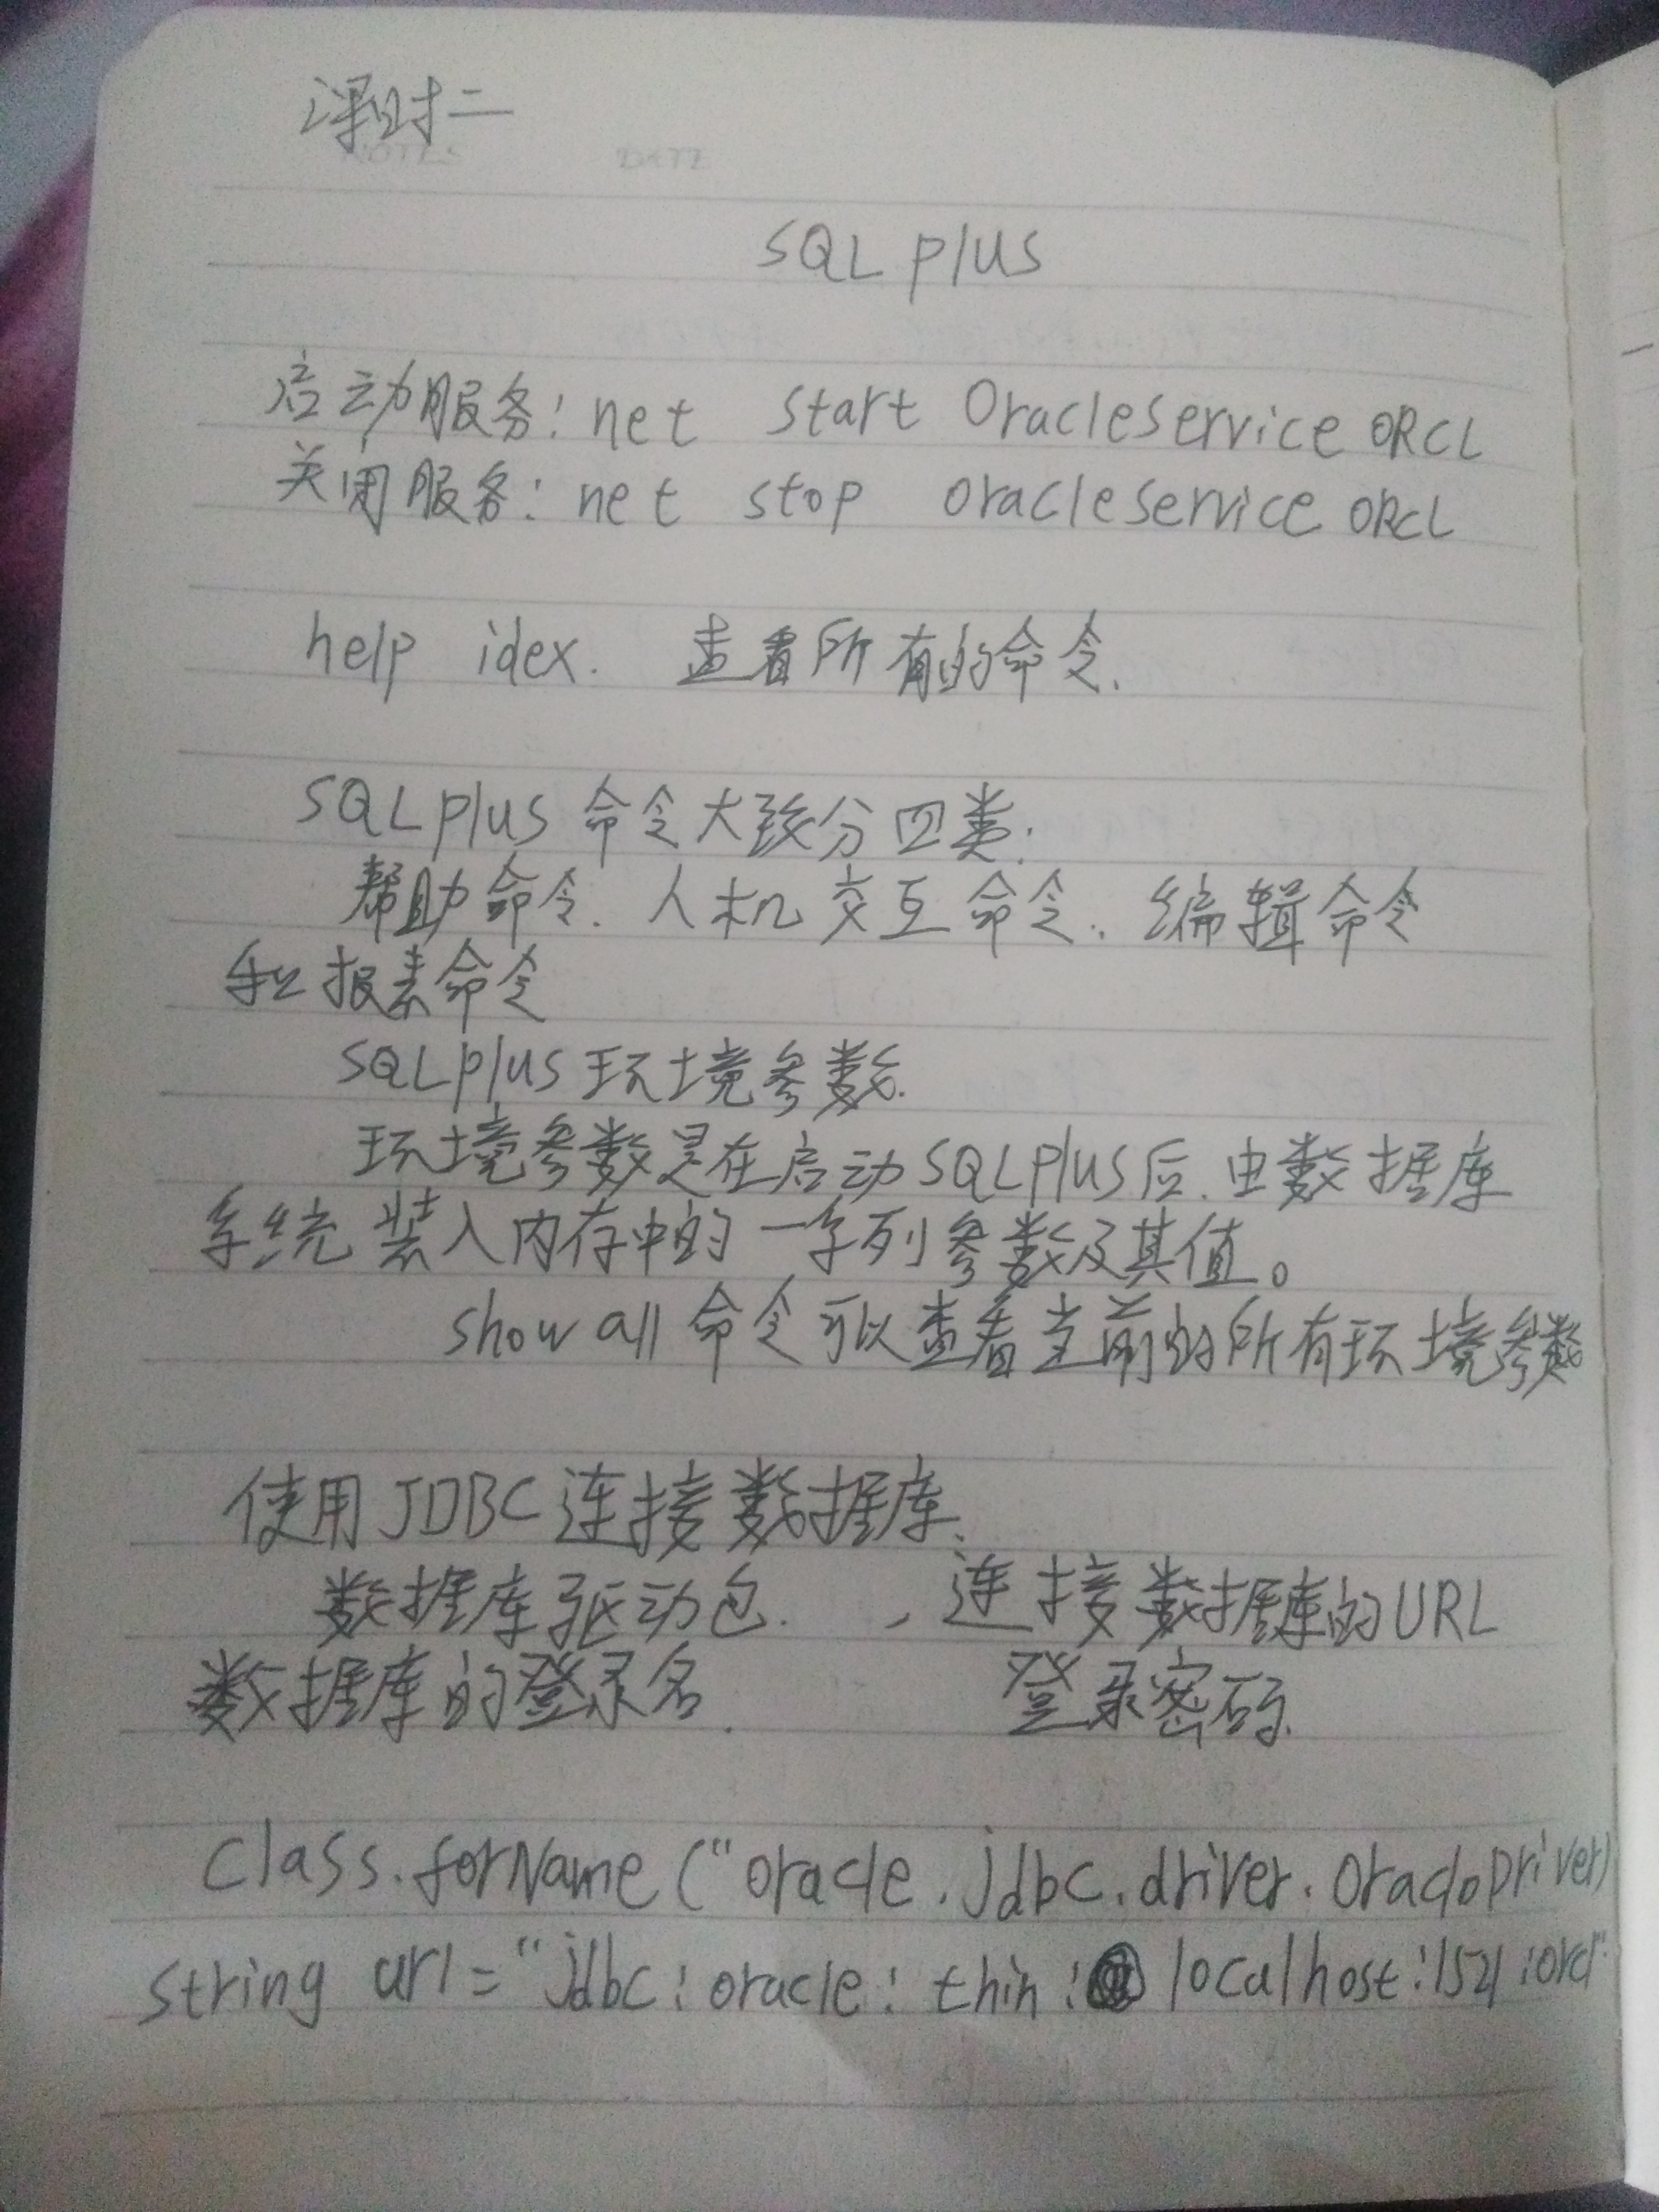 课时二
NOTES DATE
SQL plus
启动服务: net start OracleserviceORCL
关闭服务: net stop oracleserviceORCL
help idex. 查看所有的命令.
SQLplus命令大致分四类:
帮助命令. 人机交互命令. 编辑命令
和报表命令
SQLplus环境参数.
环境参数是在启动SQLPlus后.由数据库
系统装入内存中的一系列参数及其值。
show all命令可以查看当前的所有环境参数
使用JDBC连接数据库.
数据库驱动包. , 连接数据库的URL
数据库的登录名. 登录密码.
Class.forName("oracle.jdbc.driver.OracleDriver)
string url="jdbc:oracle:thin:@localhost:1521:orcl"